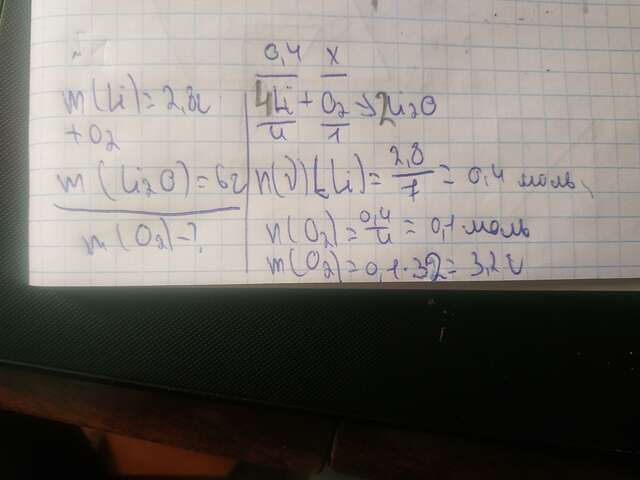 m(Li)=2,8г
+O2
m(Li2O)=6г
m(O2)-?
0,4 x
4Li + O2 → 2Li2O
4 1
n(ν)(Li)= 2,8/7 = 0,4 моль
n(O2)= 0,4/4 = 0,1 моль
m(O2)=0,1·32=3,2г